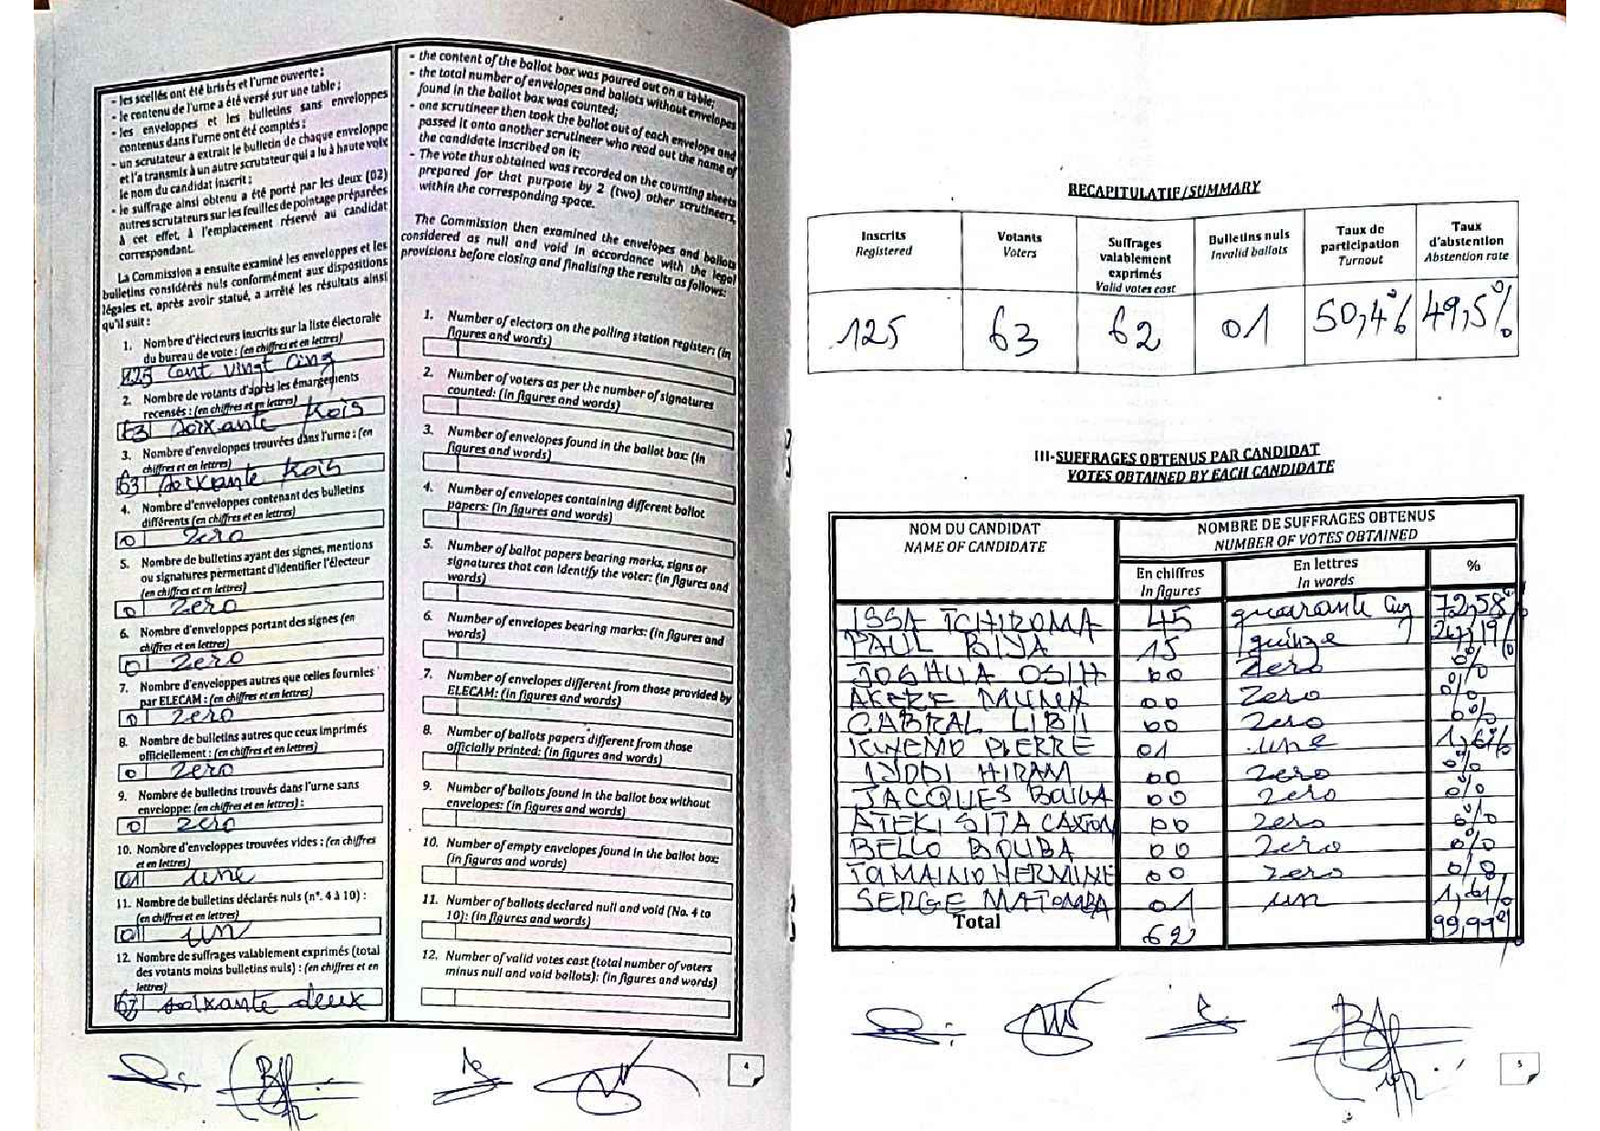 - les scellés ont été brisés et l'urne ouverte ;
- le contenu de l'urne a été versé sur une table ;
- les enveloppes et les bulletins sans enveloppes
contenus dans l'urne ont été comptés ;
- un scrutateur a extrait le bulletin de chaque enveloppe
et l'a transmis à un autre scrutateur qui a lu à haute voix
le nom du candidat inscrit ;
- le suffrage ainsi obtenu a été porté par les deux (02)
autres scrutateurs sur les feuilles de pointage préparées
à cet effet, à l'emplacement réservé au candidat
correspondant.
La Commission a ensuite examiné les enveloppes et les
bulletins considérés nuls conformément aux dispositions
légales et, après avoir statué, a arrêté les résultats ainsi
qu'il suit :
1. Nombre d'électeurs inscrits sur la liste électorale
du bureau de vote : (en chiffres et en lettres)
125 Cent vingt cinq
2. Nombre de votants d'après les émargements
recensés : (en chiffres et en lettres)
63 soixante trois
3. Nombre d'enveloppes trouvées dans l'urne : (en
chiffres et en lettres)
63 soixante trois
4. Nombre d'enveloppes contenant des bulletins
différents (en chiffres et en lettres)
0 zero
5. Nombre de bulletins ayant des signes, mentions
ou signatures permettant d'identifier l'électeur
(en chiffres et en lettres)
0 zero
6. Nombre d'enveloppes portant des signes (en
chiffres et en lettres)
0 zero
7. Nombre d'enveloppes autres que celles fournies
par ELECAM : (en chiffres et en lettres)
0 zero
8. Nombre de bulletins autres que ceux imprimés
officiellement : (en chiffres et en lettres)
0 zero
9. Nombre de bulletins trouvés dans l'urne sans
enveloppe: (en chiffres et en lettres) :
0 zero
10. Nombre d'enveloppes trouvées vides : (en chiffres
et en lettres)
01 une
11. Nombre de bulletins déclarés nuls (n°. 4 à 10) :
(en chiffres et en lettres)
01 un
12. Nombre de suffrages valablement exprimés (total
des votants moins bulletins nuls) : (en chiffres et en
lettres)
62 soixante deux
- the content of the ballot box was poured out on a table;
- the total number of envelopes and ballots without envelopes
found in the ballot box was counted;
- one scrutineer then took the ballot out of each envelope and
passed it onto another scrutineer who read out the name of
the candidate inscribed on it;
- The vote thus obtained was recorded on the counting sheets
prepared for that purpose by 2 (two) other scrutineers,
within the corresponding space.
The Commission then examined the envelopes and ballots
considered as null and void in accordance with the legal
provisions before closing and finalising the results as follows:
1. Number of electors on the polling station register: (in
figures and words)
2. Number of voters as per the number of signatures
counted: (in figures and words)
3. Number of envelopes found in the ballot box: (in
figures and words)
4. Number of envelopes containing different ballot
papers: (in figures and words)
5. Number of ballot papers bearing marks, signs or
signatures that can identify the voter: (in figures and
words)
6. Number of envelopes bearing marks: (in figures and
words)
7. Number of envelopes different from those provided by
ELECAM: (in figures and words)
8. Number of ballots papers different from those
officially printed: (in figures and words)
9. Number of ballots found in the ballot box without
envelopes: (in figures and words)
10. Number of empty envelopes found in the ballot box:
(in figures and words)
11. Number of ballots declared null and void (No. 4 to
10): (in figures and words)
12. Number of valid votes cast (total number of voters
minus null and void ballots): (in figures and words)
4
RECAPITULATIF/SUMMARY
Inscrits Registered | Votants Voters | Suffrages valablement exprimés Valid votes cast | Bulletins nuls Invalid ballots | Taux de participation Turnout | Taux d'abstention Abstention rate
125 | 63 | 62 | 01 | 50,4% | 49,5%
III-SUFFRAGES OBTENUS PAR CANDIDAT
VOTES OBTAINED BY EACH CANDIDATE
NOM DU CANDIDAT NAME OF CANDIDATE | NOMBRE DE SUFFRAGES OBTENUS NUMBER OF VOTES OBTAINED
En chiffres In figures | En lettres In words | %
ISSA TCHIROMA 45 quarante cinq 72,58%
PAUL BIYA 15 quinze 24,19%
JOSHUA OSIH 00 zero 0%
AKERE MUNA 00 zero 0%
CABRAL LIBII 00 zero 0%
KWEMO PIERRE 01 une 1,61%
IYODI HIRAM 00 zero 0%
JACQUES BOUGA 00 zero 0%
ATEKI SITA CAXTON 00 zero 0%
BELLO BOUBA 00 zero 0%
TOMAINO HERMINE 00 zero 0%
SERGE MATOMBA 01 un 1,61%
Total 62 99,99%
5